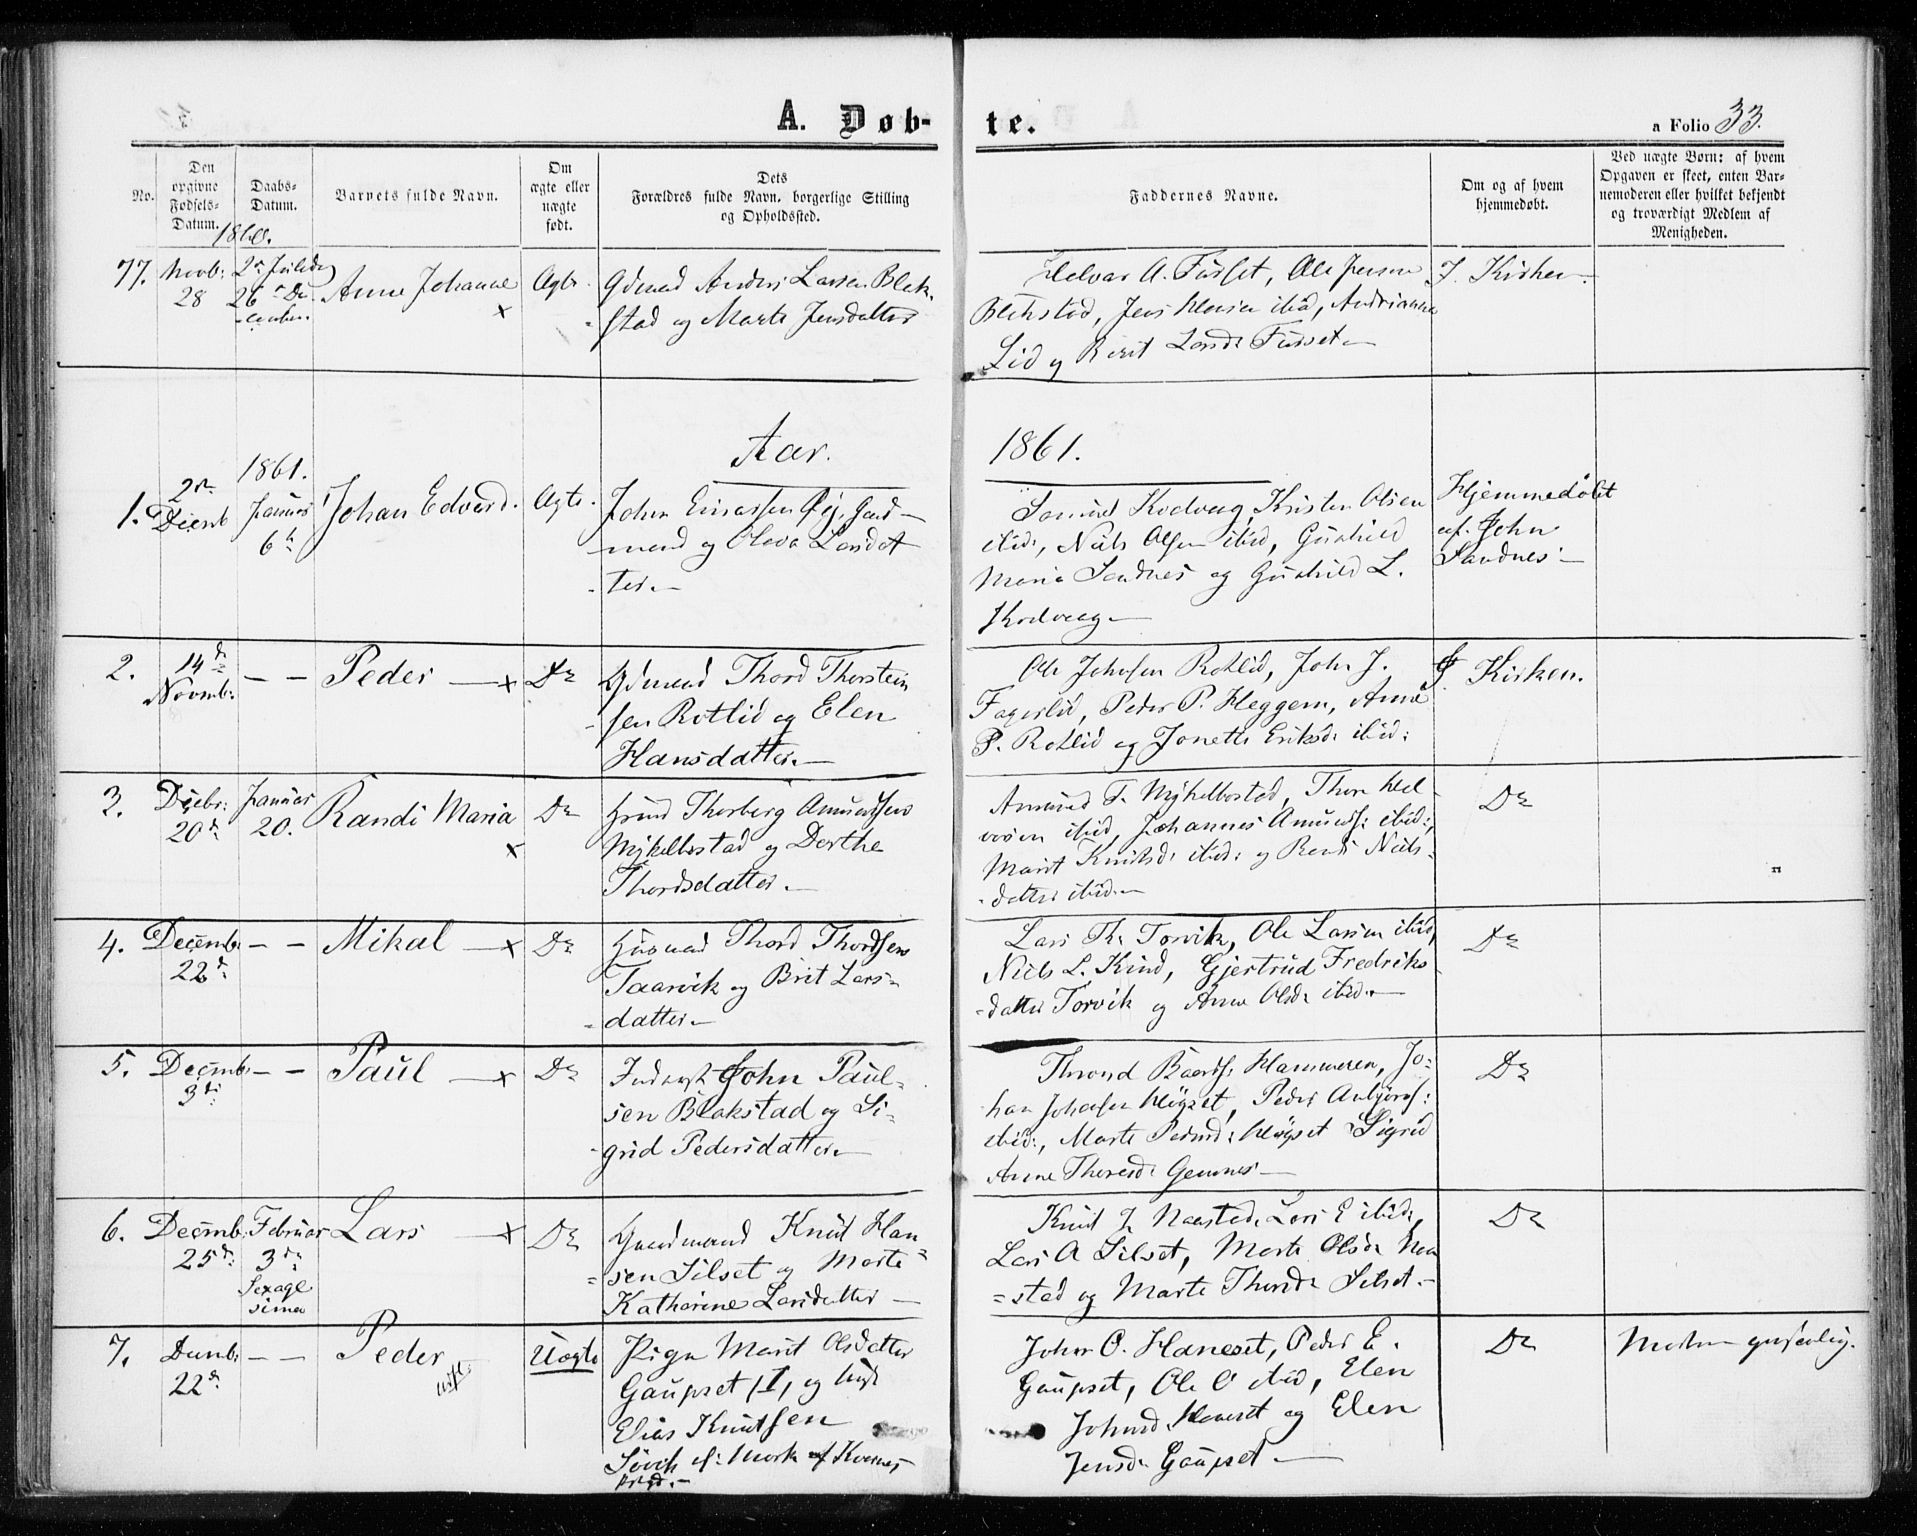 A. Døb-
te.
a Folio 33.
No.
Den
opgivne
Fødsels-
Datum.
Daabs-
Datum.
Barnets fulde Navn.
Om
ægte eller
uægte
født.
Dets
Forældres fulde Navn, borgerlige Stilling
og Opholdssted.
Faddernes Navne.
Om og af hvem
hjemmedøbt.
Ved uægte Børn: af hvem
Opgaven er skeet, enten Bar-
nemoderen eller hvilket bekjendt
og troværdigt Medlem af
Menigheden.
1860.
77.
Novb:
28
2n Juledag
26
Anne Johanne
x
Ægte
Gdmand Anders Larsen Blek-
stad og Marte Jensdatter
Helvar A. Furset, Ole Jensen
Blekstad, Jens ibid, Andrianna
Lid og Berit Larsd: Furset
I. Kirken
Aar.
1861.
1.
2n
Decmb
1861.
Januar
6te
Johan Edvard.
Ægte
John Einarssen Øj, Gaard-
mand og Olava Larsdat
ter.
Samuel Kvalvaag, Kristen Olsen
ibid:, Niels Olsen ibid, Gunhild
Maria Sandnes og Gunhild L.
Kvalvaag
Hjemmedøbt
af John
Sandnes
2.
14d
Novmb:
— —
Peder — x
Do
Gdmand Thord Thorstein
sen Rotlid og Elen
Hansdatter.
Ole Johnsen Rotlid, John J.
Fagerlid, Peder P. Heggem, Anne
P. Rotlid og Jonette Eriksd: ibid:
I Kirken.
3.
Decbr:
20d
Januar
20.
Randi Maria
x
Do
Thorberg Amundsen
Myklebostad og Dorthe
Thordsdatter
Amund T. Myklebostad, Thore Hel-
vorsen ibid, Johannes Amunds: ibid:,
Marit Knutsd: ibid: og Randi Niels-
datter ibid.
Do
4.
Decemb:
22d:
— —
Mikal — x
Do
Husmand Thord Thordsen
Taarvik og Brit Lars-
datter
Lars Th: Torvik, Ole Larsen ibid,
Niels L. Kind, Gjertrud Fredriks
datter Torvik og Anne Olsd: ibid.
Do
5.
Decmb:
3di
— —
Paul — x
Do
Inderst John Paul-
sen Blakstad og Si-
grid Pedersdatter
Thrond Baards: Hammeren, Jo-
han Johnsen Høgset, Peder Anbjørns:
ibid:, Marte Pedersd: Høgset Sigrid
Anne Thoresd: Gemnes
Do
6.
Decemb.
25d:
Februar
3di
Sexage
sima
Lars — x
Do
Gaardmand Knut Han
sen Silset og Marte
Katherine Larsdatter
Knut J. Naastad, Lars E ibid:,
Lars A Silset, Marte Olsd: Naa
stad og Marte Thorsd: Silset
Do
7.
Decmb:
22d:
— —
Peder
Uægte
Pige Marit Olsdatter
Gaupset (I, og Ungk
Elias Knutsen
Søvik
John O. Haneset, Peder E.
Gaupset, Ole O ibid, Elen
Johnsd. Haneset og Elen
Jensd: Gaupset
Do
Moderen